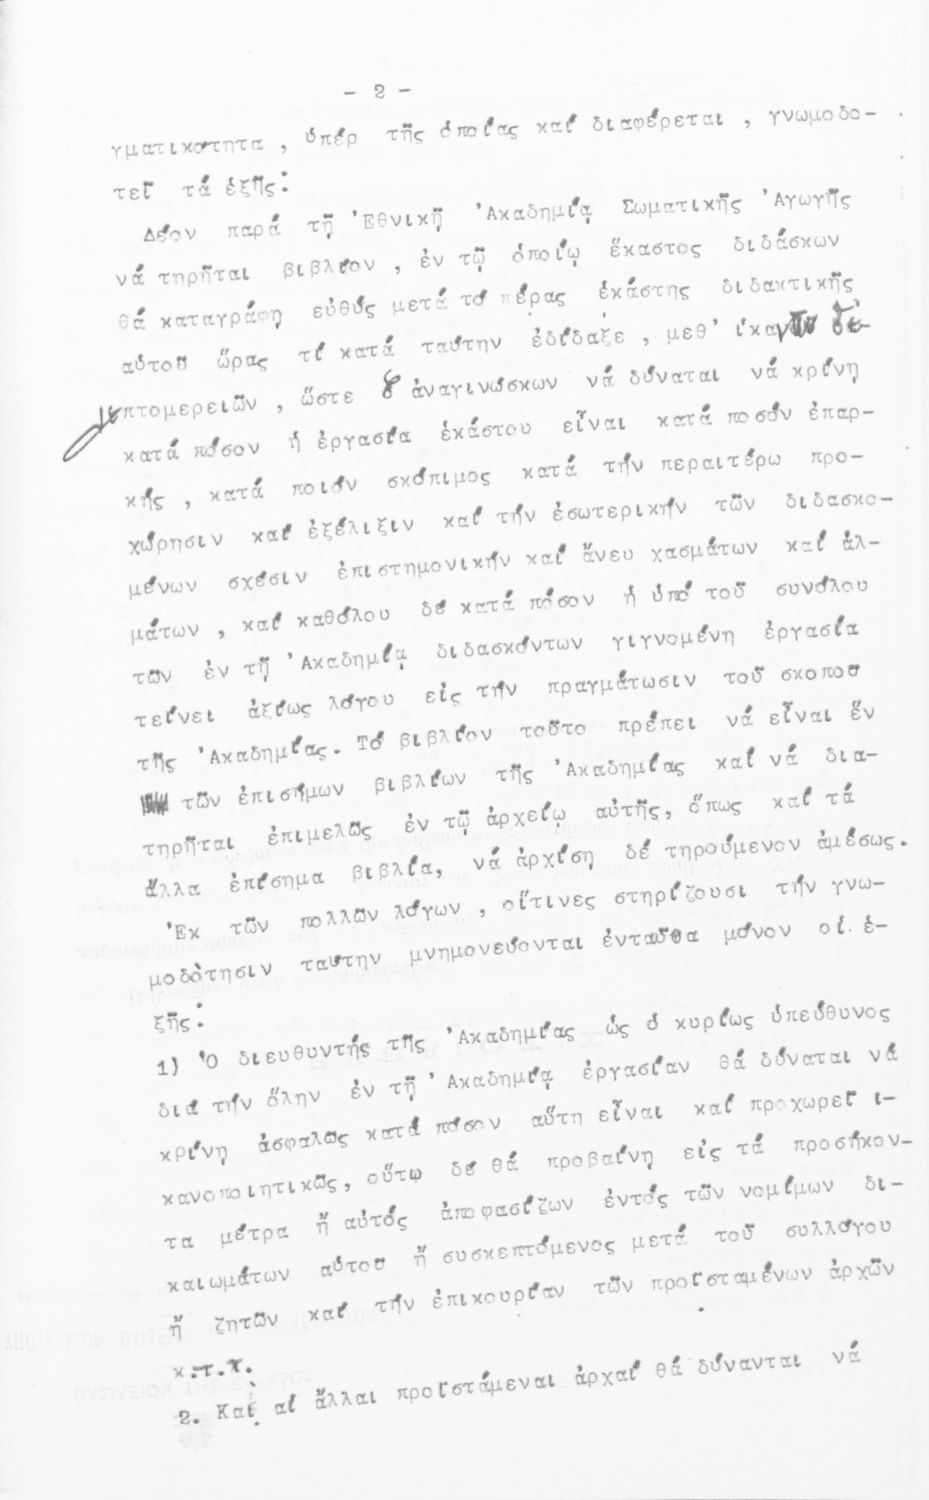 - 2 -
γματικότητα, ὑπέρ τῆς ὁποίας καί διαφέρεται, γνωμοδο-
τεῖ τά ἑξῆς:
Δέον παρά τῇ Ἐθνικῇ Ἀκαδημίᾳ Σωματικῆς Ἀγωγῆς
νά τηρῆται βιβλίον, ἐν τῷ ὁποίῳ ἕκαστος διδάσκων
θά καταγράφῃ εὐθύς μετά τό πέρας ἑκάστης διδακτικῆς
αὐτοῦ ὥρας τί κατά ταύτην ἐδίδαξε, μεθ' ἱκανῶν
πτομερειῶν, ὥστε ὁ ἀναγινώσκων νά δύναται νά κρίνῃ
κατά πόσον ἡ ἐργασία ἑκάστου εἶναι κατά ποσόν ἐπαρ-
κής, κατά ποιόν σκόπιμος κατά τήν περαιτέρω προ-
χώρησιν καί ἐξέλιξιν καί τήν ἐσωτερικήν τῶν διδασκο-
μένων σχέσιν ἐπιστημονικήν καί ἄνευ χασμάτων καί ἁλ-
μάτων, καί καθόλου δέ κατά πόσον ἡ ὑπό τοῦ συνόλου
τῶν ἐν τῇ Ἀκαδημίᾳ διδασκόντων γιγνομένη ἐργασία
τείνει ἀξίως λόγου εἰς τήν πραγμάτωσιν τοῦ σκοποῦ
τῆς Ἀκαδημίας. Τό βιβλίον τοῦτο πρέπει νά εἶναι ἕν
τῶν ἐπισήμων βιβλίων τῆς Ἀκαδημίας καί νά δια-
τηρῆται ἐπιμελῶς ἐν τῷ ἀρχείῳ αὐτῆς, ὅπως καί τά
ἄλλα ἐπίσημα βιβλία, νά ἀρχίσῃ δέ τηρούμενον ἀμέσως.
Ἐκ τῶν πολλῶν λόγων, οἵτινες στηρίζουσι τήν γνω-
μοδότησιν ταύτην μνημονεύονται ἐνταῦθα μόνον οἱ ἑ-
ξῆς:
1) Ὁ διευθυντής τῆς Ἀκαδημίας ὡς ὁ κυρίως ὑπεύθυνος
διά τήν ὅλην ἐν τῇ Ἀκαδημίᾳ ἐργασίαν θά δύναται νά
κρίνῃ ἀσφαλῶς κατά πόσον αὕτη εἶναι καί προχωρεῖ ἱ-
κανοποιητικῶς, οὕτω δέ θά προβαίνῃ εἰς τά προσήκον-
τα μέτρα ἤ αὐτός ἀποφασίζων ἐντός τῶν νομίμων δι-
καιωμάτων αὐτοῦ ἤ συσκεπτόμενος μετά τοῦ συλλόγου
ἤ ζητῶν καί τήν ἐπικουρίαν τῶν προϊσταμένων ἀρχῶν
κ.τ.τ.
2. Καί αἱ ἄλλαι προϊστάμεναι ἀρχαί θά δύνανται νά